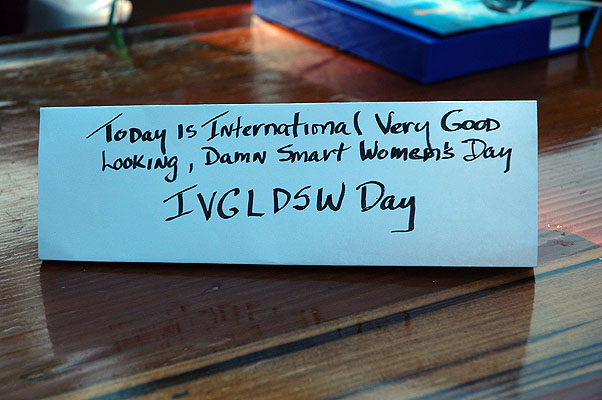 Today is International Very Good
Looking, Damn Smart Women's Day
IVGLDSW Day